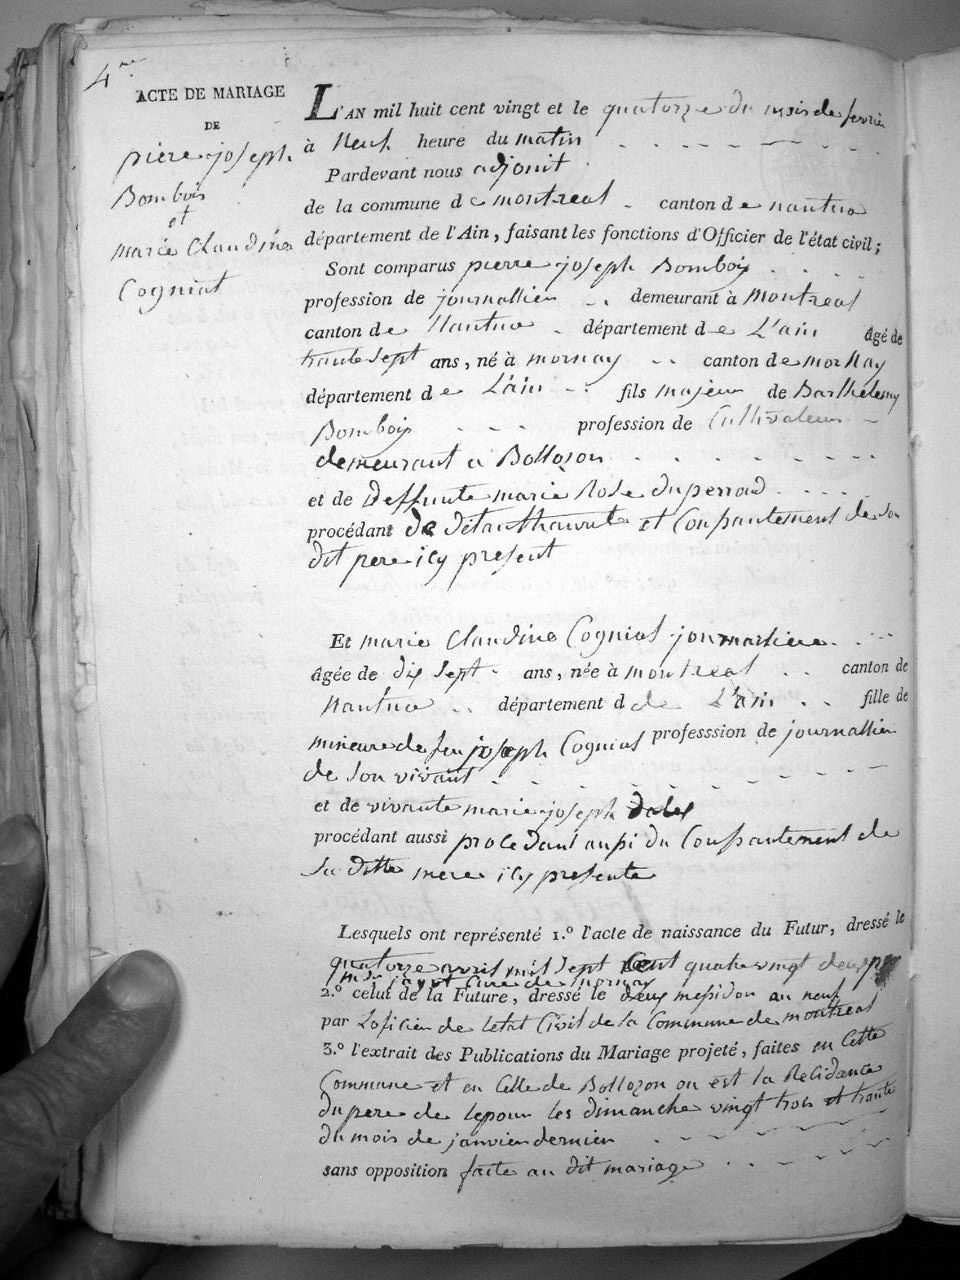 4me
ACTE DE MARIAGE
DE
pierre joseph
Bomboix
et
marie Claudine
Cogniat
L'AN mil huit cent vingt et le quatorze du mois de fevrier
à Neuf heure du matin
Pardevant nous adjoint
de la commune de montreal canton de nantua
département de l'Ain, faisant les fonctions d'Officier de l'état civil;
Sont comparus pierre joseph Bomboix
profession de journallier demeurant à Montreal
canton de Nantua département de L'ain âgé de
trante sept ans, né à mornay canton de morNay
département de L'ain fils majeur de Barthelemy
Bomboix profession de Cultivateur
demeurant a Bollozon
et de Deffunte marie Rose duperrad
procédant de et Conssantement de son
dit pere icy present
Et marie Claudine Cogniat journaliere
âgée de dix sept ans, née à montreal canton de
Nantua département d de L'ain fille de
mineure de feu joseph Cogniat professsion de journallier
de son vivant
et de vivante marie joseph
procédant aussi procedant aussi du Conssantement de
sa ditte mere icy presente
Lesquels ont représenté 1.º l'acte de naissance du Futur, dressé le
quatorze avril mil sept Cent quatre vingt deux par
mr Cure de mornay
2.º celui de la Future, dressé le deux messidor an neuf
par Loficier de letat Civil de la Commune de montreal
3.º l'extrait des Publications du Mariage projeté, faites en Cette
Commune et en Celle de Bollozon ou est la Residance
du pere de lepoux les dimanche vingt trois et trante
du mois de janvier dernier
sans opposition faite au dit mariage